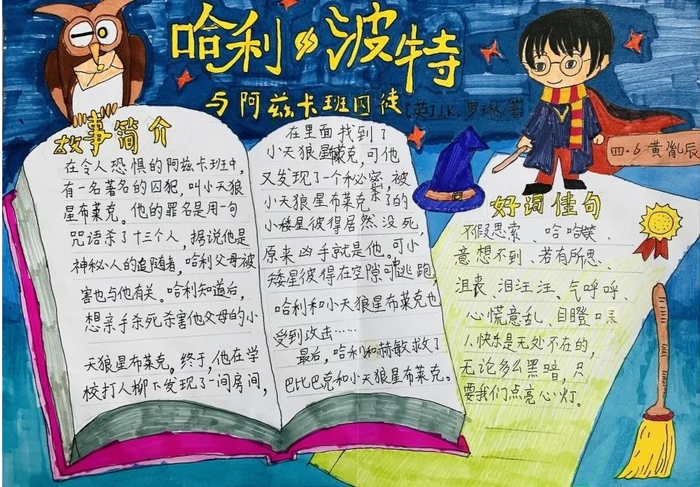 哈利波特
与阿兹卡班囚徒
[英]J.K.罗琳 著
四·6 黄胤辰
故事简介
在令人恐惧的阿兹卡班中,
有一名著名的囚犯,叫小天狼
星布莱克。他的罪名是用一句
咒语杀了十三个人,据说他是
神秘人的追随者,哈利父母被
害也与他有关。哈利知道后,
想亲手杀死杀害他父母的小
天狼星布莱克。终于,他在学
校打人柳下发现了一间房间,
在里面找到了
小天狼星布莱克,可他
又发现了一个秘密,被
小天狼星布莱克杀了的
小矮星彼得居然没死,
原来凶手就是他。可小
矮星彼得在空隙时逃跑,
哈利和小天狼星布莱克也
受到攻击……
最后,哈利和赫敏救了
巴比巴克和小天狼星布莱克。
好词佳句
不假思索、哈哈笑、
意想不到、若有所思、
沮丧、泪汪汪、气呼呼、
心慌意乱、目瞪口呆
1.快乐是无处不在的,
无论多么黑暗,只
要我们点亮心灯。